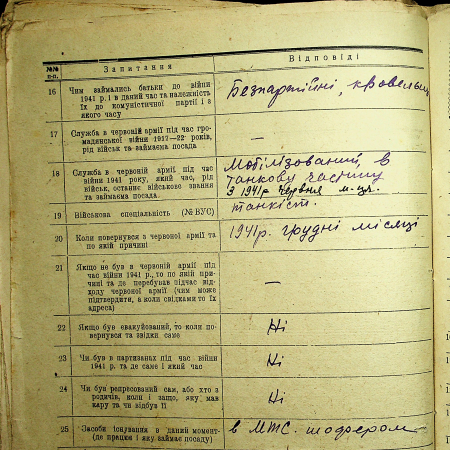 №№ п-п.
Запитання
Відповіді
16
Чим займались батьки до війни
1941 р. і в даний час та належність
їх до комуністичної партії і з
якого часу
Безпартійні, кровельщ
17
Служба в червоній армії під час гро-
мадянської війни 1917—22 років,
рід військ та займаєма посада
—
18
Служба в червоній армії під час
війни 1941 року, який час, рід
військ, останнє військове звання
та займаєма посада.
Мобілізований в
танкову частину
З 1941р червня м-ця.
19
Військова спеціальність (№ ВУС)
танкіст.
20
Коли повернувся з червоної армії та
по якій причині
1941р. грудні місяці
21
Якщо не був в червоній армії під
час війни 1941 р., то по якій при-
чині та де перебував підчас від-
ходу червоної армії (чим може
підтвердити, а коли свідками то їх
адреса)
—
22
Якщо був евакуйований, то коли по-
вернувся та звідки саме
Ні
23
Чи був в партизанах під час війни
1941 р. та де саме і який час
Ні
24
Чи був репресований сам, або хто з
родичів, коли і защо, яку мав
кару та чи відбув її
Ні
25
Засоби існування в даний момент-
(де працює і яку займає посаду)
в МТС. шофером